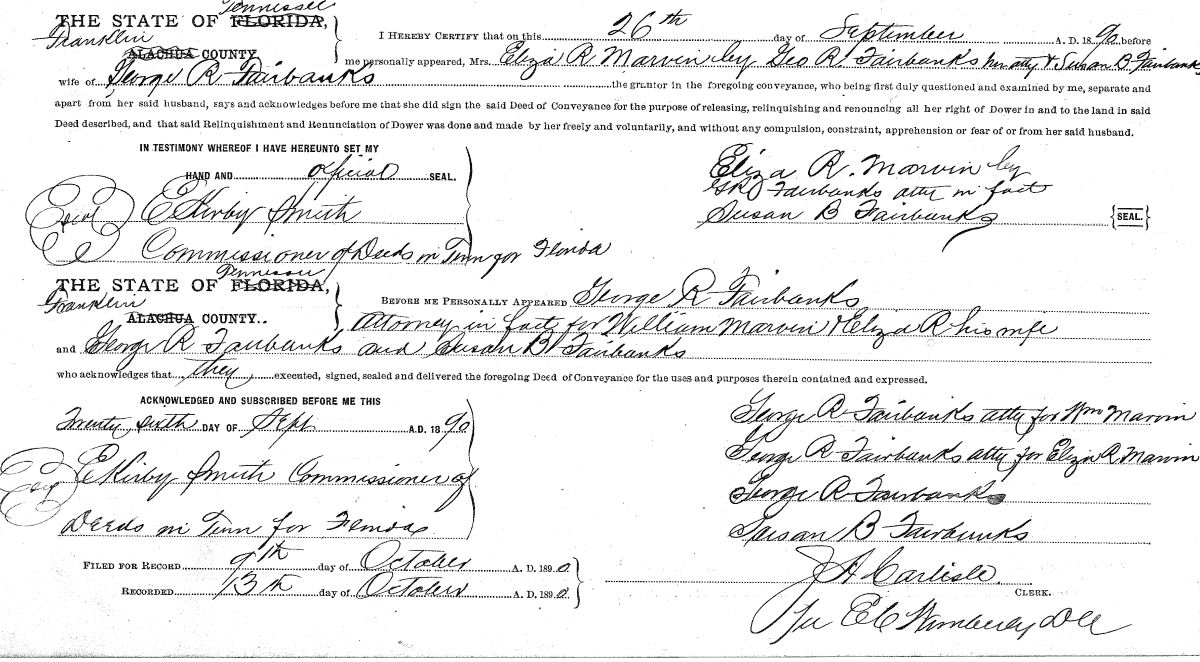 Tennessee
THE STATE OF FLORIDA,
Franklin
ALACHUA COUNTY.
I HEREBY CERTIFY that on this 26th day of September A. D. 1890 before
me personally appeared, Mrs. Eliza R Marvin by Geo R Fairbanks her atty & Susan B Fairbanks
wife of George R Fairbanks the grantor in the foregoing conveyance, who being first duly questioned and examined by me, separate and
apart from her said husband, says and acknowledges before me that she did sign the said Deed of Conveyance for the purpose of releasing, relinquishing and renouncing all her right of Dower in and to the land in said
Deed described, and that said Relinquishment and Renunciation of Dower was done and made by her freely and voluntarily, and without any compulsion, constraint, apprehension or fear of or from her said husband.
IN TESTIMONY WHEREOF I HAVE HEREUNTO SET MY
HAND AND official SEAL.
E Kirby Smith
Commissioner of Deeds in Tenn for Florida
Eliza R. Marvin by
GR Fairbanks atty in fact
Susan B Fairbanks
{SEAL.}
Tennessee
THE STATE OF FLORIDA,
Franklin
ALACHUA COUNTY..
BEFORE ME PERSONALLY APPEARED George R Fairbanks
Attorney in fact for William Marvin & Eliza R his wife
and George R Fairbanks and Susan B Fairbanks
who acknowledges that they executed, signed, sealed and delivered the foregoing Deed of Conveyance for the uses and purposes therein contained and expressed.
ACKNOWLEDGED AND SUBSCRIBED BEFORE ME THIS
Twenty sixth DAY OF Sept A.D. 1890
E Kirby Smith Commissioner of
Deeds in Tenn for Florida
George R Fairbanks atty for Wm Marvin
George R Fairbanks atty for Eliza R Marvin
George R Fairbanks
Susan B Fairbanks
FILED FOR RECORD 9th day of October A. D. 1890
RECORDED 13th day of October A. D. 1890
J A Carlisle
CLERK.